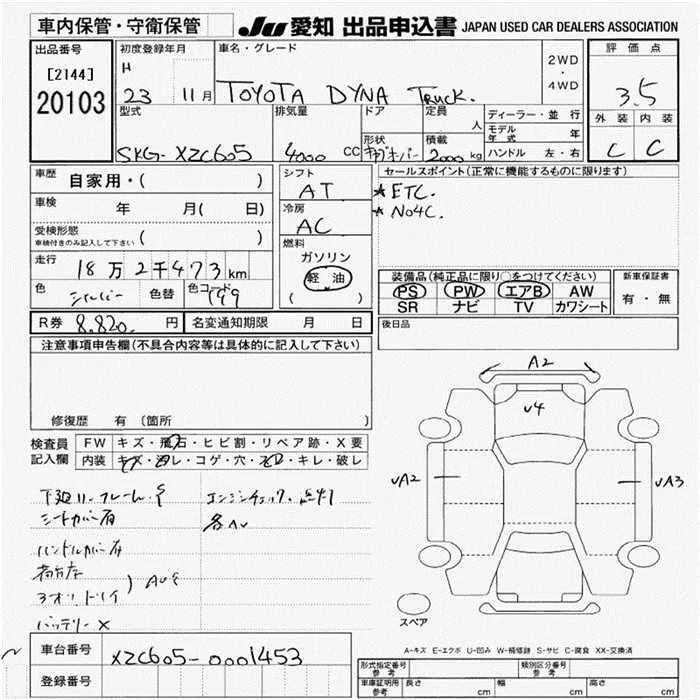 車内保管・守衛保管
JU 愛知 出品申込書 JAPAN USED CAR DEALERS ASSOCIATION
出品番号
[2144]
20103
初度登録年月
H 23 11月
車名・グレード
TOYOTA DYNA Truck.
2WD
・
4WD
評価点
3.5
外装 内装
C C
型式
SKG-XZC605
排気量
4000 CC
ドア
形状
キャブオーバー
定員
人
積載
2000 kg
ディーラー・並行
モデル年式 年
ハンドル 左・右
車歴 自家用・( )
車検 年 月( 日)
受検形態
車検付きのみ記入して下さい ( )
走行 18万2千473km
色 シルバー 色替 色コード 199
シフト
AT
冷房
AC
燃料
ガソリン
軽油
( )
セールスポイント(正常に機能するものに限ります)
*ETC.
*No4C.
装備品(純正品に限り○をつけてください)
PS PW エアB AW
SR ナビ TV カワシート
新車保証書
有・無
R券 8,820. 円 名変通知期限 月 日
後日品
注意事項申告欄(不具合内容等は具体的に記入して下さい)
修復歴 有 (箇所
検査員記入欄
FW キズ・飛石・ヒビ割・リペア跡・X要
内装 キズ・汚レ・コゲ・穴・スレ・キレ・破レ
シートカバー有
エンジンチェック点灯
ハンドルカバー有
バッテリーX
A2
v4
vA2
vA3
スペア
A-キズ E-エクボ U-凹み W-補修跡 S-サビ C-腐食 XX-交換済
車台番号 XZC605-0001453
登録番号
形式指定番号 参考
類別区分番号 参考
車庫証明用 参考 長さ cm 幅 cm 高さ cm